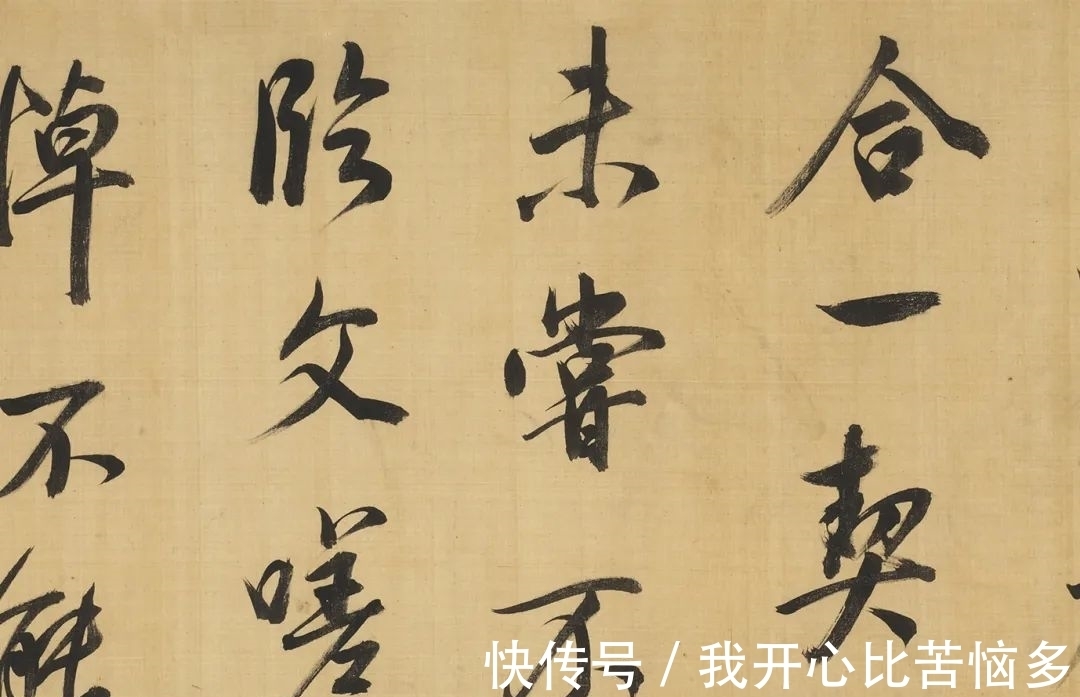 合一契
未嘗不
臨文嗟
悼不能
快传号 / 我开心比苦恼多